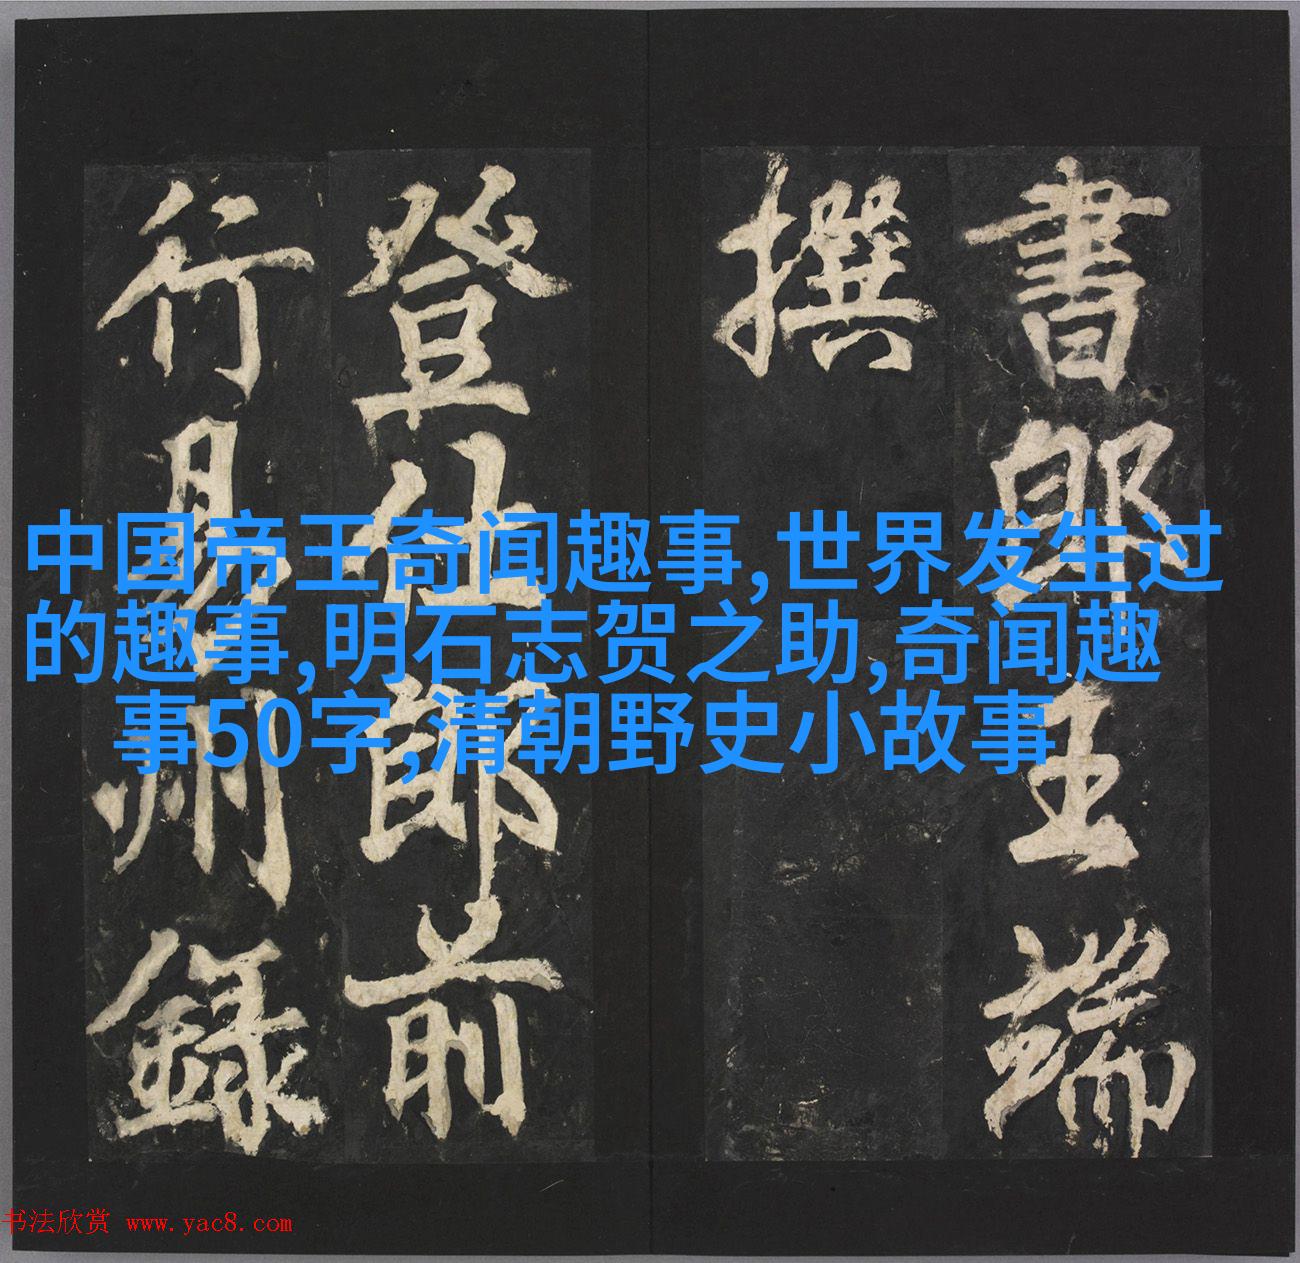 書郎王端
撰
登仕郎前
行易州錄
中国帝王奇闻趣事,世界发生过
的趣事,明石志贺之助,奇闻趣
事50字,清朝野史小故事
书法欣赏 www.yac8.com